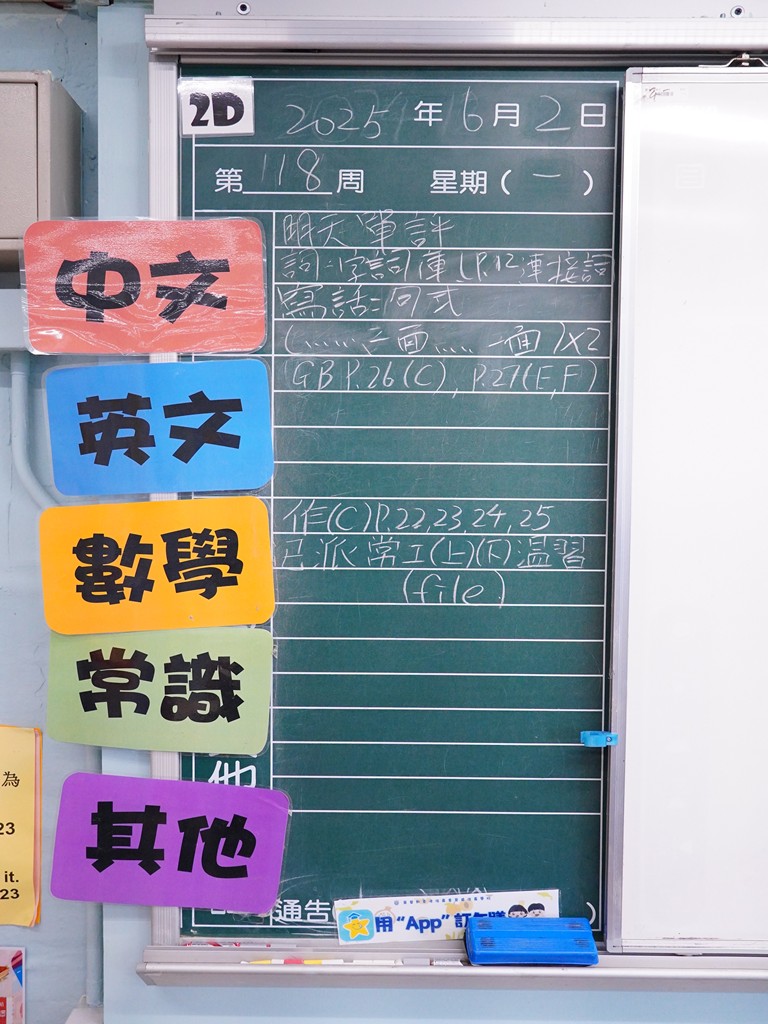 2D
2025 年 6 月 2 日
第 118 周 星期（一）
中文
明天單評
詞：字詞庫、P.12連接詞
寫話：句式
(……一面……一面)X2
英文
GB P.26(C), P.27(E,F)
數學
作(C)P.22,23,24,25
常識
已派常工(上)(下)温習
(file)
其他
他
通告(
)
用 “App”
為
23
it.
23